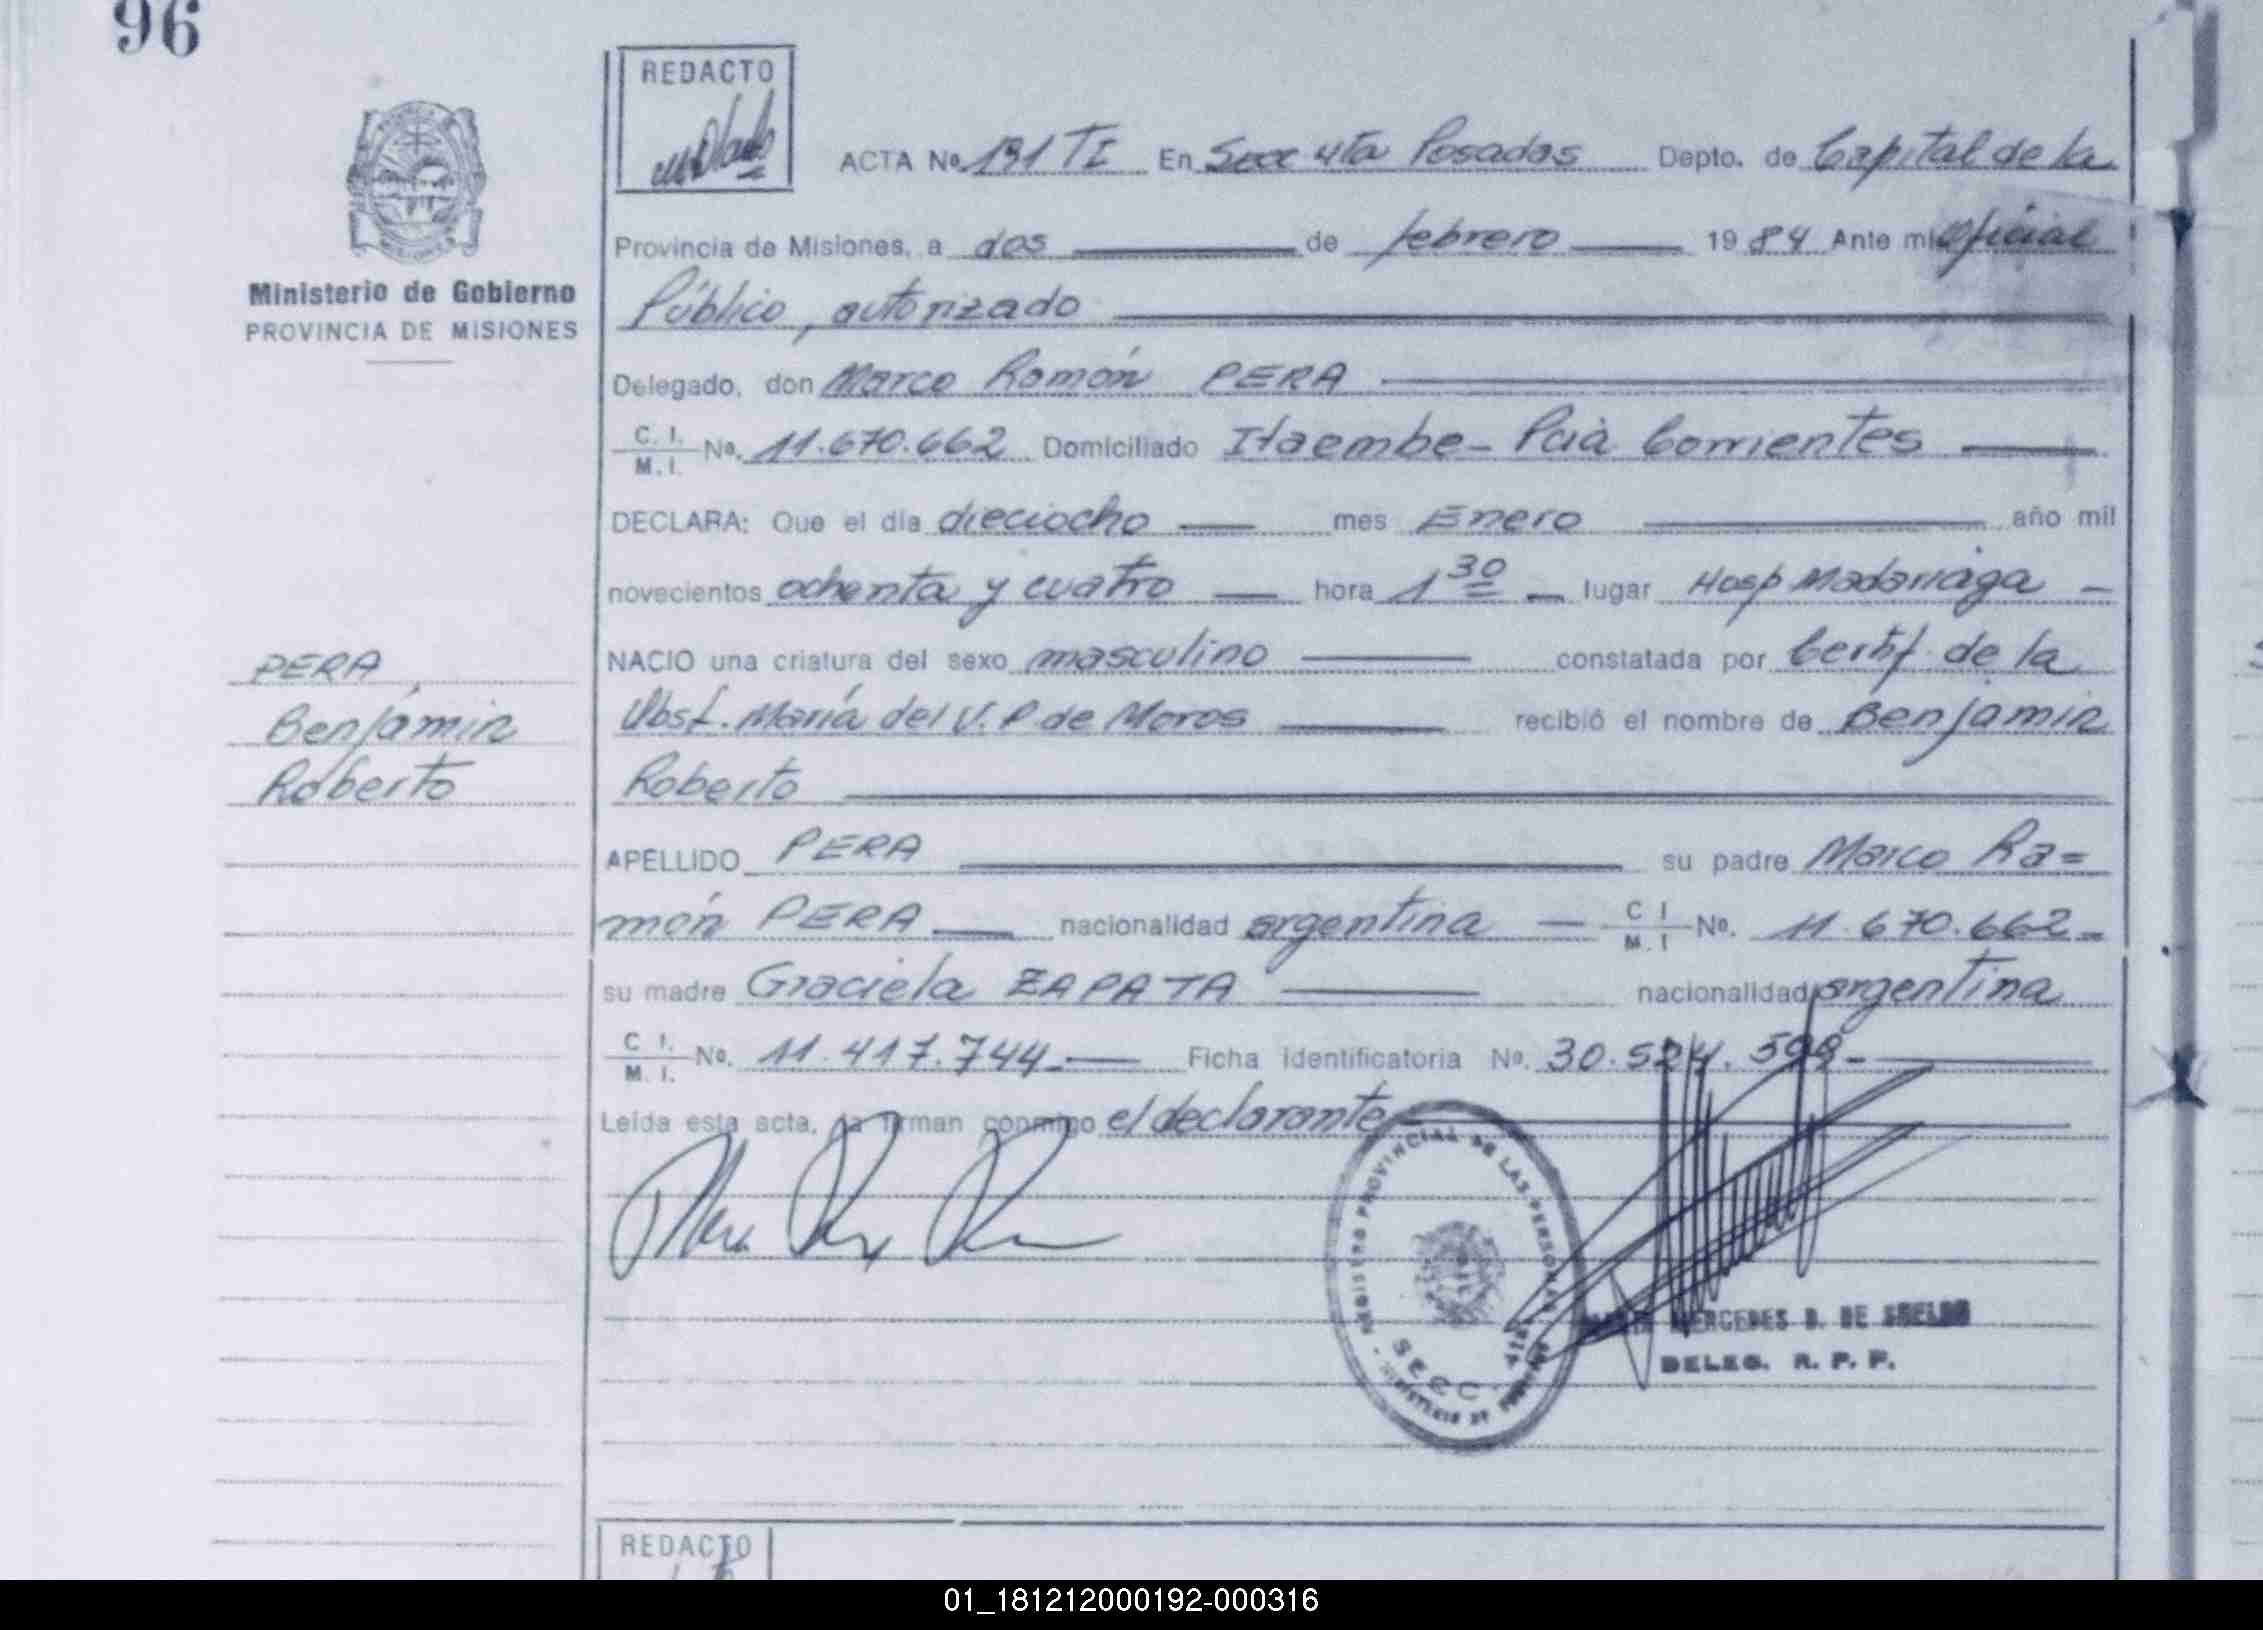 96
REDACTO
ACTA No. 131 TI En Secc 4ta Posadas Depto. de Capital de la
Provincia de Misiones, a dos de febrero 1984 Ante mi Oficial
Ministerio de Gobierno
PROVINCIA DE MISIONES
Público, autorizado
Delegado, don Marco Ramón PERA
C. I. / M. I. No. 11.670.662 Domiciliado Itaembe - Pcia Corrientes
DECLARA: Que el día dieciocho mes Enero año mil
novecientos ochenta y cuatro hora 1 30 lugar Hosp Madariaga
NACIO una criatura del sexo masculino constatada por Certif. de la
Obst. María del V. P. de Moros recibió el nombre de Benjamin
Roberto
PERA,
Benjamin
Roberto
APELLIDO PERA su padre Marco Ra=
món PERA nacionalidad argentina C I / M. I No. 11.670.662
su madre Graciela ZAPATA nacionalidad argentina
C I. / M. I. No. 11.417.744 Ficha identificatoria No. 30.524.
Leída esta acta, la firman conmigo el declarante
REGISTRO PROVINCIAL DE LAS PERSONAS
SECC. 4TA
MERCEDES B. DE
DELEG. R. P. P.
REDACTO
01_181212000192-000316